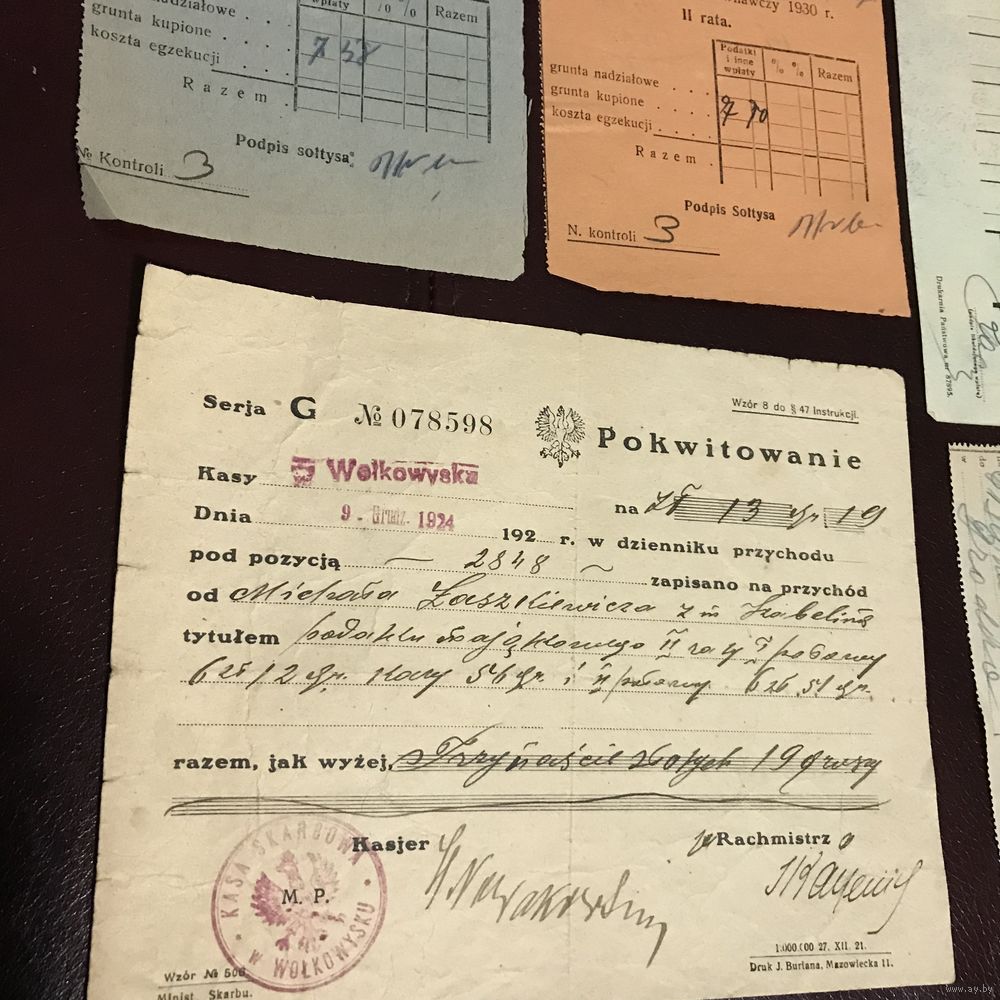 wpłaty % % Razem
nadziałowe
grunta kupione
7 58
koszta egzekucji
Razem
Podpis sołtysa:
№ Kontroli 3
1930 r.
II rata.
Podatki i inne wpłaty % % Razem
grunta nadziałowe
grunta kupione
koszta egzekucji
Razem
Podpis Sołtysa
N. kontroli 3
Drukarnia Państwowa, nr 87895.
Wzór 8 do § 47 Instrukcji.
Serja G № 078598 Pokwitowanie
Kasy Wołkowyska
na zł 13 gr. 19
Dnia 9. Grudz. 1924 192 r. w dzienniku przychodu
pod pozycją — 2848 ~ zapisano na przychód
od Michała z
tytułem podatku majątkowego II raty I połowy
6 zł 12 gr. kary 56 gr. i II połowy 6 zł. 51 gr.
razem, jak wyżej, Trzynaście złotych 19 groszy
Kasjer Rachmistrz
KASA SKARBOWA W WOŁKOWYSKU
M. P.
1.000.000 27. XII. 21.
Druk J. Buriana, Mazowiecka 11.
Wzór № 506
Minist. Skarbu.
www.ay.by